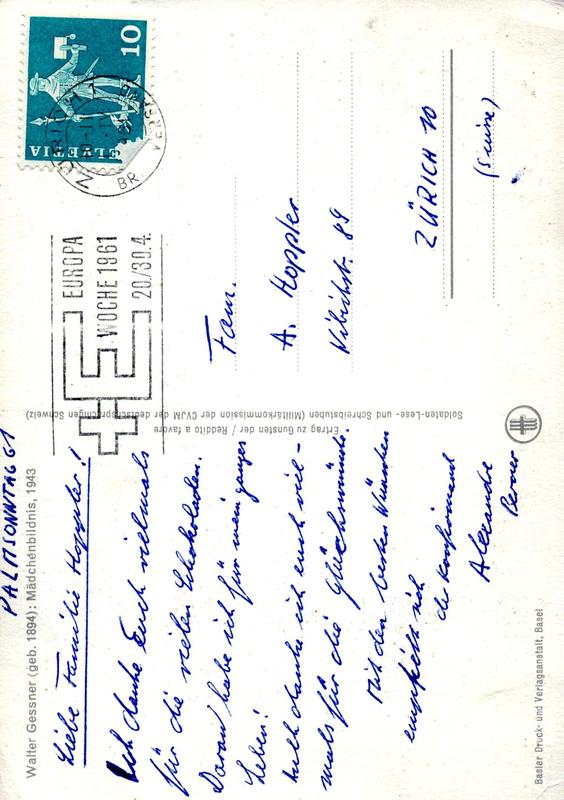 PALMSONNTAG 61
Walter Gessner (geb. 1894): Mädchenbildnis, 1943
Liebe Familie Hoppler!
Ich danke Euch vielmals
für die vielen Schokoladen.
Daran habe ich für mein ganzes
Leben!
Auch danke ich euch viel-
mals für die Glückswünsche.
Mit den besten Wünschen
empfiehlt sich
der Konfirmand
Alexandre
Basler Druck- und Verlagsanstalt, Basel
Ertrag zu Gunsten der / Reddito a favore
Soldaten-Lese- und Schreibstuben (Militärkommission der CVJM der deutschsprachigen Schweiz)
HELVETIA
10
EUROPA
WOCHE 1961
20/30.4.
E
Fam.
A. Hoppler
89
ZÜRICH 10
(Suisse)